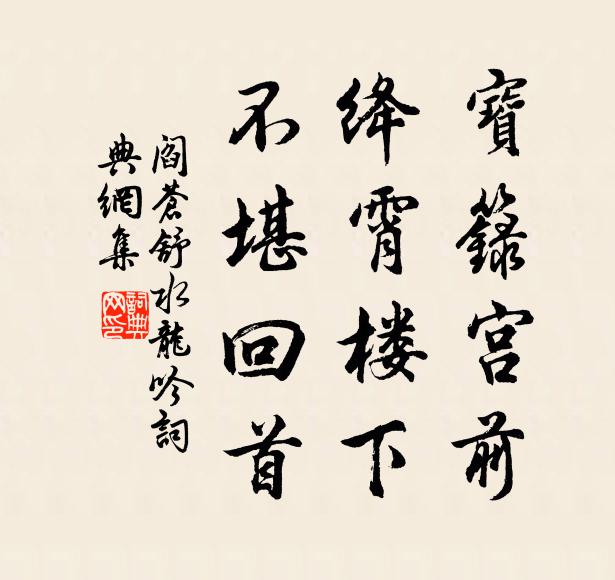 寶籙宫前
绛霄楼下
不堪回首
阎蒼舒水龍吟詞
典網集
詞典
网印